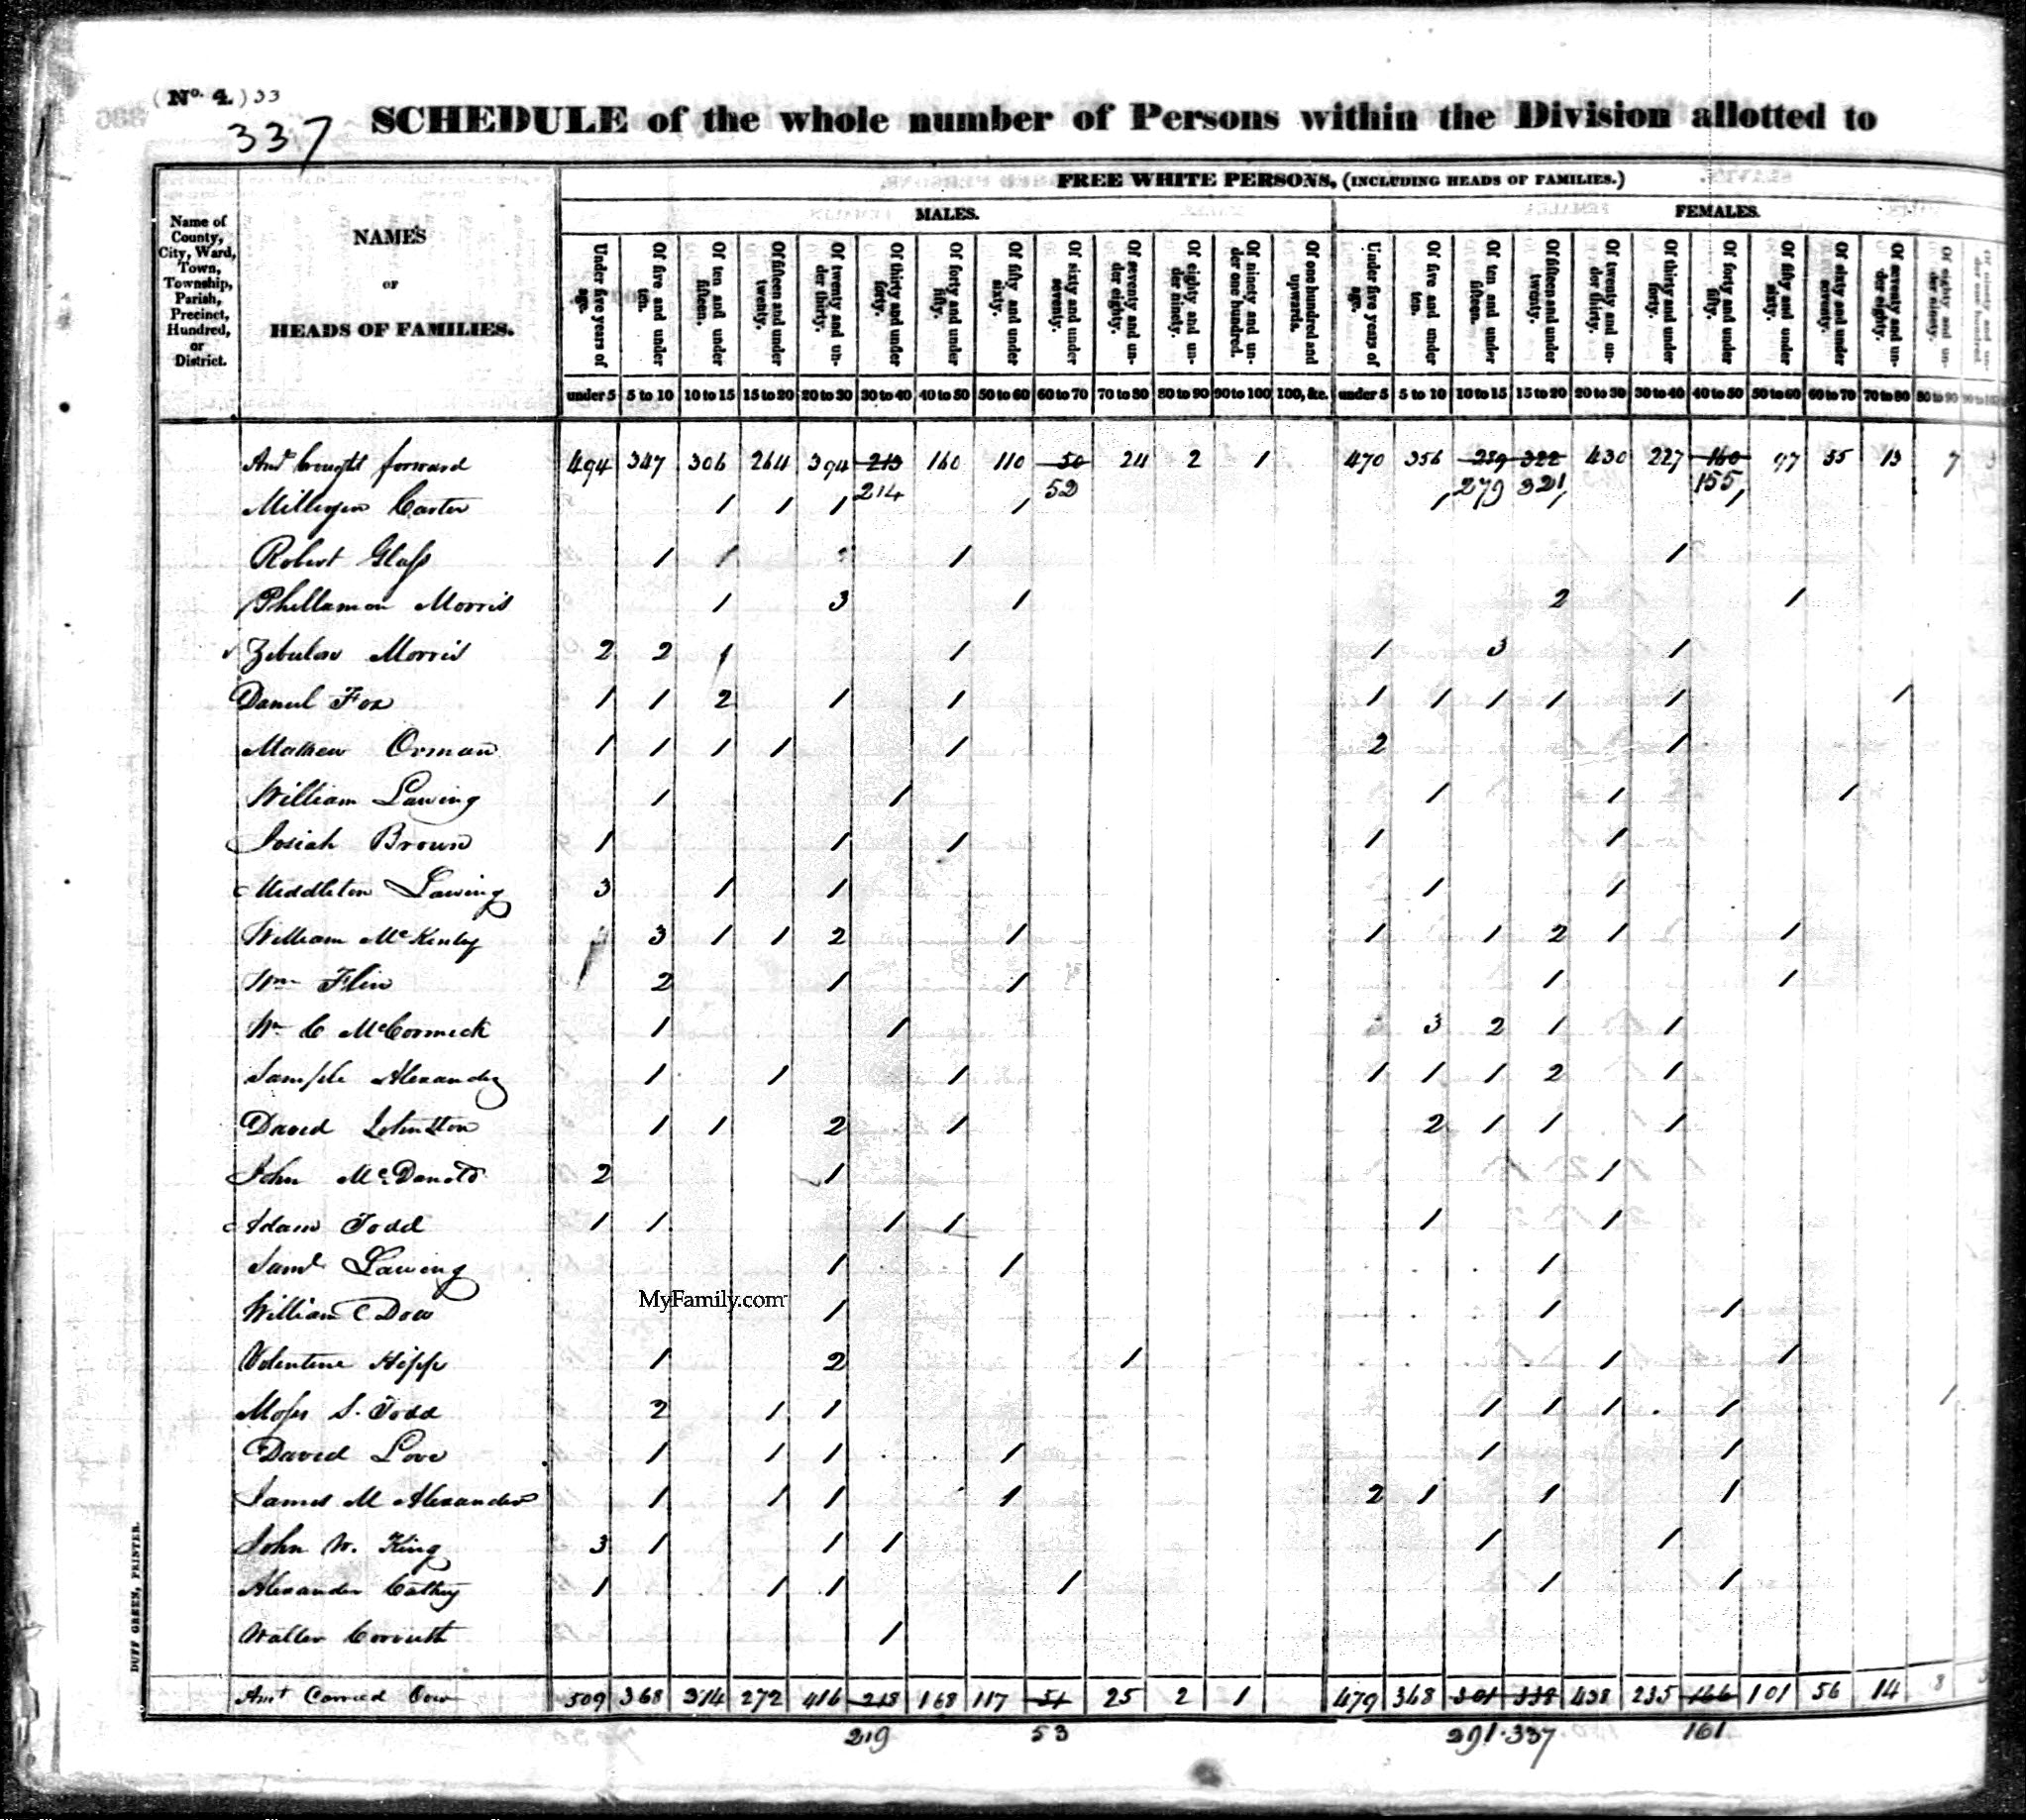 (No. 4.) 33
337
SCHEDULE of the whole number of Persons within the Division allotted to
FREE WHITE PERSONS, (INCLUDING HEADS OF FAMILIES.)
MALES. FEMALES.
Name of County, City, Ward, Town, Township, Parish, Precinct, Hundred, or District.
NAMES
OF
HEADS OF FAMILIES.
Under five years of age. Of five and under ten. Of ten and under fifteen. Of fifteen and under twenty. Of twenty and under thirty. Of thirty and under forty. Of forty and under fifty. Of fifty and under sixty. Of sixty and under seventy. Of seventy and under eighty. Of eighty and under ninety. Of ninety and under one hundred. Of one hundred and upwards. Under five years of age. Of five and under ten. Of ten and under fifteen. Of fifteen and under twenty. Of twenty and under thirty. Of thirty and under forty. Of forty and under fifty. Of fifty and under sixty. Of sixty and under seventy. Of seventy and under eighty. Of eighty and under ninety.
under 5 5 to 10 10 to 15 15 to 20 20 to 30 30 to 40 40 to 50 50 to 60 60 to 70 70 to 80 80 to 90 90 to 100 100, &c. under 5 5 to 10 10 to 15 15 to 20 20 to 30 30 to 40 40 to 50 50 to 60 60 to 70 70 to 80 80 to 90
Amt brought forward 494 347 306 264 394 213 160 110 50 24 2 1 470 356 289 322 430 227 160 97 55 13 7
214 52 279 321 155
Milligen Carter 1 1 1 1 1 1 1
Robert Glass 1 1 1 1
Phillamon Morris 1 3 1 2 1
Zebulon Morris 2 2 1 1 1 3 1
Daniel Fox 1 1 2 1 1 1 1 1 1 1 1
Mathew Orman 1 1 1 1 1 2 1
William Lawing 1 1 1 1 1
Josiah Brown 1 1 1 1 1
Middleton Lawing 3 1 1 1 1
William McKinley 3 1 1 2 1 1 1 2 1 1
Wm Flin 2 1 1 1 1
Wm C McCormick 1 1 3 2 1 1
Sample Alexander 1 1 1 1 1 1 2 1
David Johnston 1 1 2 1 2 1 1 1
John McDonald 2 1 1
Adam Todd 1 1 1 1 1 1
Saml Lawing 1 1 1
MyFamily.com
William C Dow 1 1 1
Volentine Hipp 1 2 1 1 1
Moses S. Todd 2 1 1 1 1 1 1 1
David Love 1 1 1 1 1 1
James M Alexander 1 1 1 1 2 1 1 1
John W. King 3 1 1 1 1 1
Alexander Cathey 1 1 1 1 1 1
Walter 1
Amt Carried Over 509 368 314 272 416 218 168 117 51 25 2 1 479 368 301 338 438 235 166 101 56 14 8
219 53 291 337 161
DUFF GREEN, PRINTER.